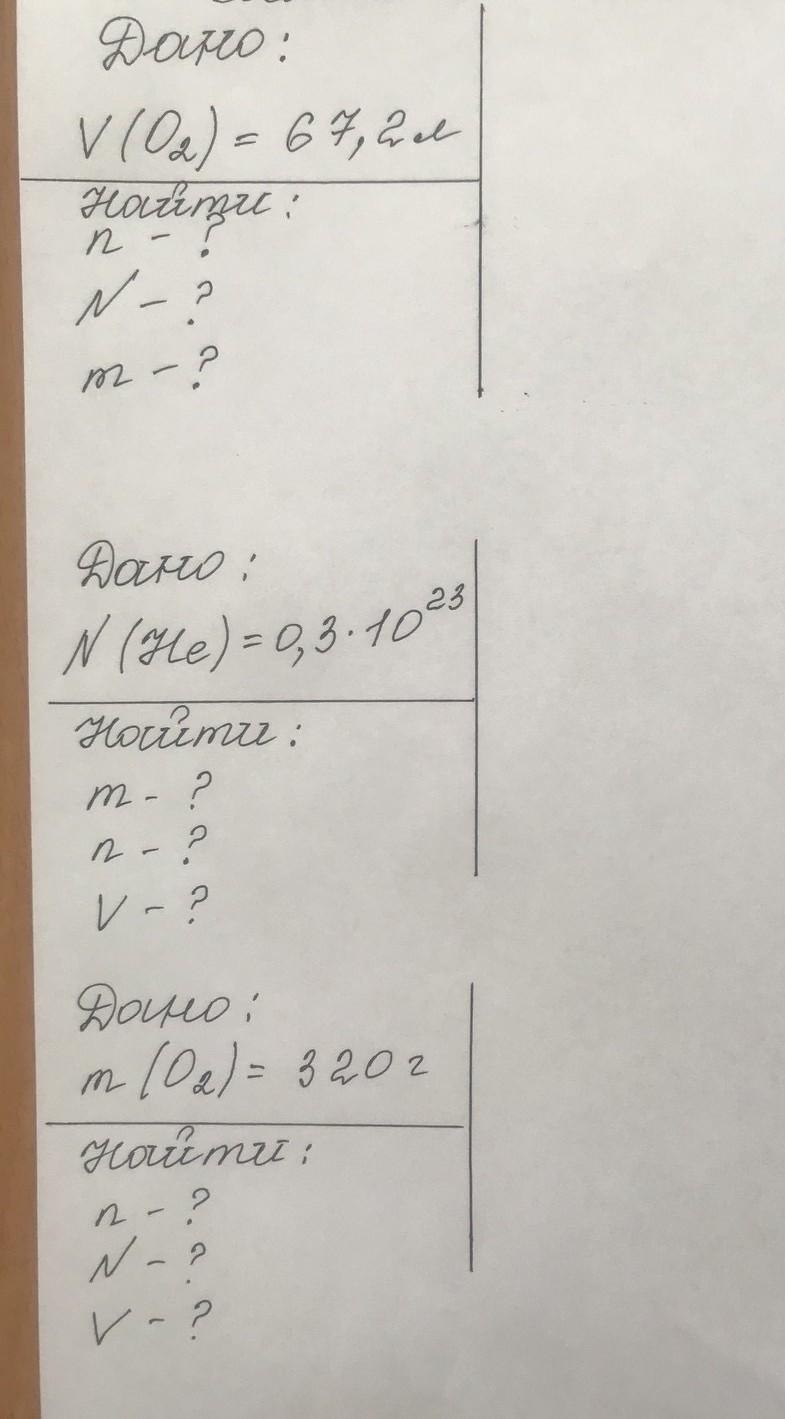 Дано:
V(O₂) = 67,2 л
Найти:
n - ?
N - ?
m - ?
Дано:
N(He) = 0,3·10²³
Найти:
m - ?
n - ?
V - ?
Дано:
m(O₂) = 320 г
Найти:
n - ?
N - ?
V - ?